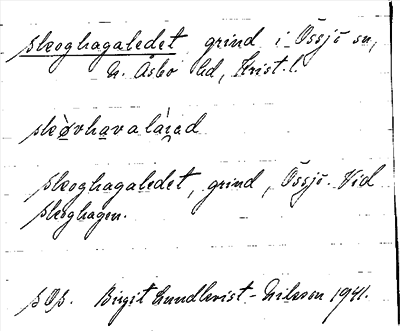 skoghagaledet grind i Össjö sn,
N. Åsbo hd, Krist. l.
skoghagaledet, grind, Össjö. Vid
skoghagen.
Birgit Lundkvist-Nilsson 1941.